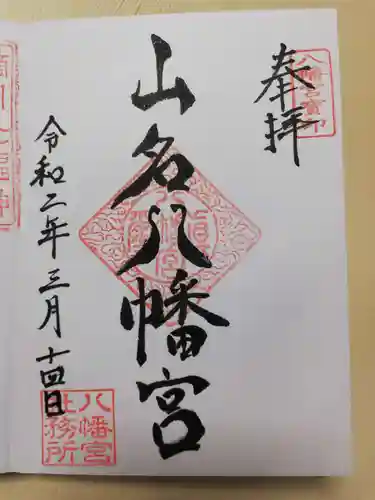 奉拝
山名八幡宮
令和二年三月十四日
八幡宮
社務所